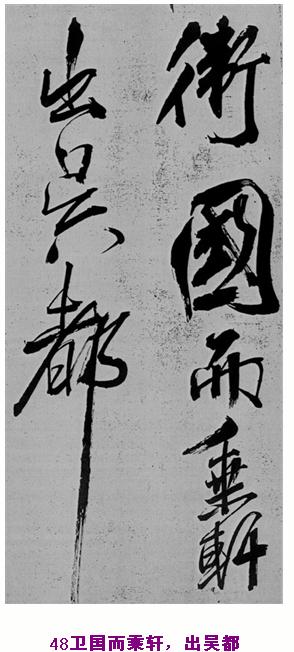 衛國而乗軒
出吳都
48卫国而乘轩，出吴都